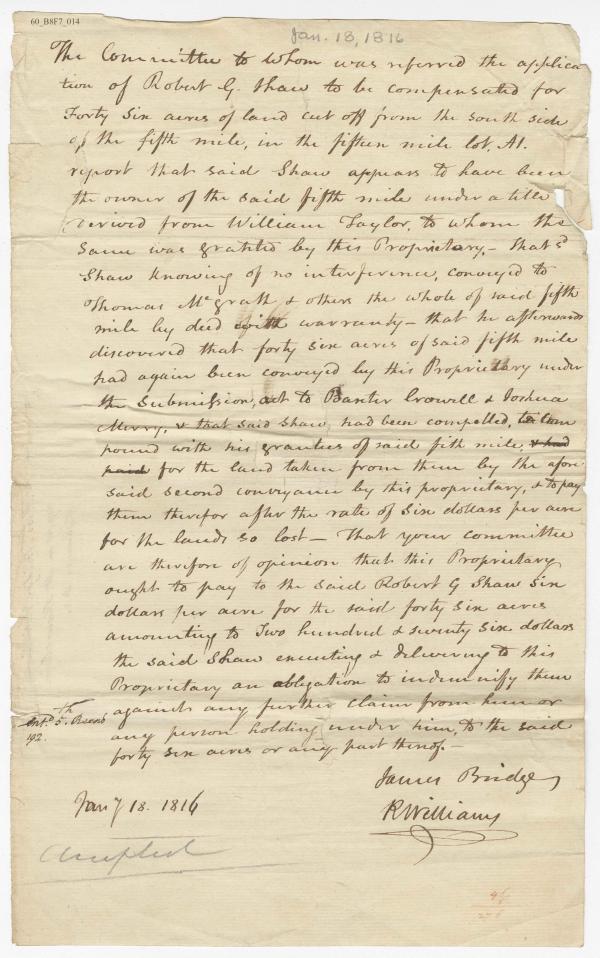 60_B8F7_014
Jan. 18, 1816
The Committee to whom was referred the applica
tion of Robert G. Shaw to be compensated for
Forty Six acres of land cut off from the south side
of the fifth mile, in the fifteen mile lot, A1.
report that said Shaw appears to have been
the owner of the said fifth mile under a title
derived from William Taylor, to whom the
same was granted by this Proprietary,- that sd
Shaw knowing of no interference, conveyed to
Thomas McGrath & others the whole of said fifth
mile by deed with warranty - that he afterwards
discovered that forty six acres of said fifth mile
had again been conveyed by this Proprietary under
the Submission, act to Baxter Crowell & Joshua
Merry, & that said Shaw, had been compelled, to com
pound with his grantees of said fifth mile, & had
paid for the land taken from them by the afore
said second conveyance by this proprietary, & to pay
them therefor after the rate of Six dollars per acre
for the lands so lost - That your committee
are therefore of opinion that this Proprietary
ought to pay to the said Robert G Shaw Six
dollars per acre for the said forty six acres
amounting to Two hundred & seventy six dollars
the said Shaw executing & delivering to this
Proprietary an obligation to indemnify them
against any further claim from him or
any person holding under him, to the said
forty six acres or any part thereof.-
Entd 5th Record
192.
James Bridge
R Williams
Jany 18. 1816
Accepted
46
276